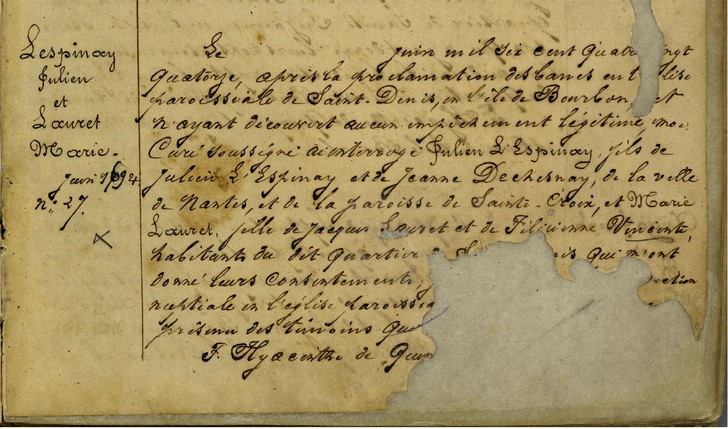 Lespinay
Julien
et
Lauret
Marie.
Juin 1694.
n° 27.
Le juin mil six cent quatre vingt
quatorze, après la proclamation des bancs en l'église
paroissiale de Saint-Denis, en l'île de Bourbon, et
n'ayant découvert aucun empêchement légitime, moi
Curé soussigné ai interrogé Julien L'Espinay, fils de
Julien L'Espinay et de Jeanne Dechesnay, de la ville
de Nantes, et de la paroisse de Sainte-Croix, et Marie
Lauret, fille de Jacques Lauret et de Félicienne Vincente,
habitants du dit Quartier qui m'ont
donné leurs consentements
nuptiale en l'église paroissia
présence des témoins que
F. Hyacinthe de Quim